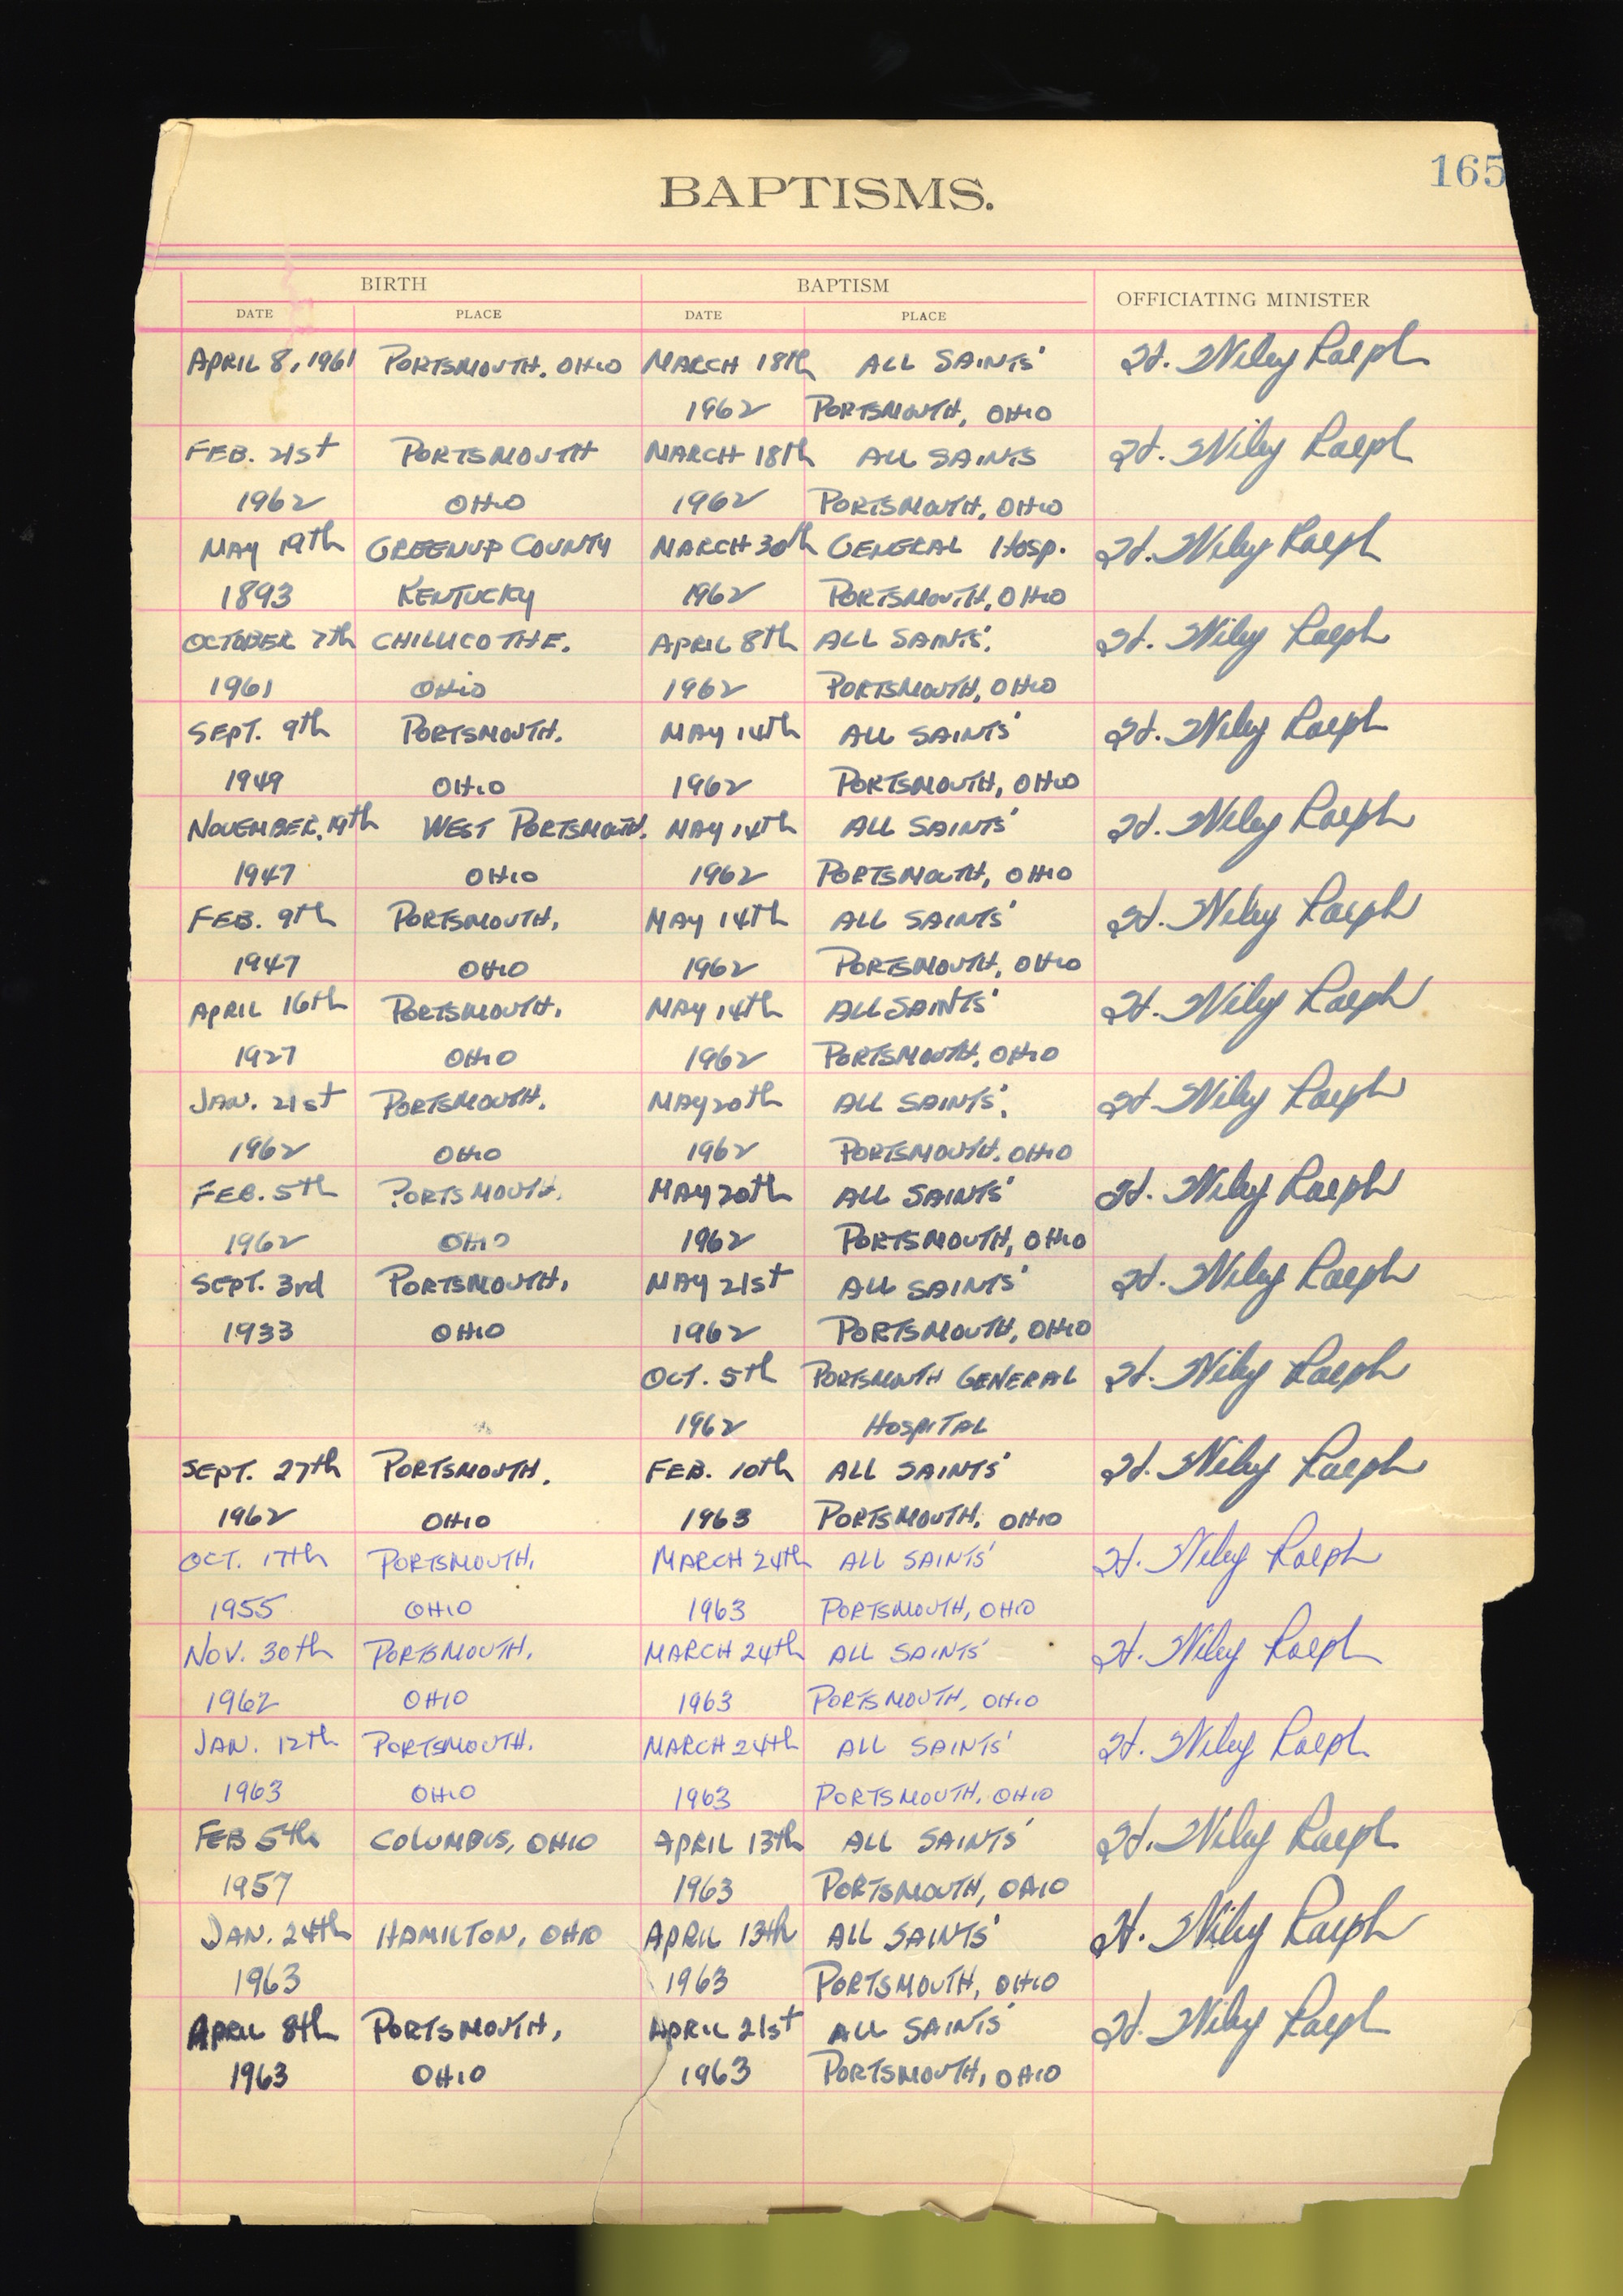 165
BAPTISMS.
BIRTH BAPTISM OFFICIATING MINISTER
DATE PLACE DATE PLACE
APRIL 8, 1961 PORTSMOUTH, OHIO MARCH 18th ALL SAINTS' H. Wiley Ralph
1962 PORTSMOUTH, OHIO
FEB. 21st PORTSMOUTH MARCH 18th ALL SAINTS H. Wiley Ralph
1962 OHIO 1962 PORTSMOUTH, OHIO
MAY 19th GREENUP COUNTY MARCH 30th GENERAL HOSP. H. Wiley Ralph
1893 KENTUCKY 1962 PORTSMOUTH, OHIO
OCTOBER 7th CHILLICOTHE. APRIL 8th ALL SAINTS', H. Wiley Ralph
1961 OHIO 1962 PORTSMOUTH, OHIO
SEPT. 9th PORTSMOUTH, MAY 14th ALL SAINTS' H. Wiley Ralph
1949 OHIO 1962 PORTSMOUTH, OHIO
NOVEMBER, 19th WEST PORTSMOUTH, MAY 14th ALL SAINTS' H. Wiley Ralph
1947 OHIO 1962 PORTSMOUTH, OHIO
FEB. 9th PORTSMOUTH, MAY 14th ALL SAINTS' H. Wiley Ralph
1947 OHIO 1962 PORTSMOUTH, OHIO
APRIL 16th PORTSMOUTH, MAY 14th ALL SAINTS' H. Wiley Ralph
1927 OHIO 1962 PORTSMOUTH, OHIO
JAN. 21st PORTSMOUTH, MAY 20th ALL SAINTS', H. Wiley Ralph
1962 OHIO 1962 PORTSMOUTH, OHIO
FEB. 5th PORTSMOUTH, MAY 20th ALL SAINTS' H. Wiley Ralph
1962 OHIO 1962 PORTSMOUTH, OHIO
SEPT. 3rd PORTSMOUTH, MAY 21st ALL SAINTS' H. Wiley Ralph
1933 OHIO 1962 PORTSMOUTH, OHIO
OCT. 5th PORTSMOUTH GENERAL H. Wiley Ralph
1962 HOSPITAL
SEPT. 27th PORTSMOUTH, FEB. 10th ALL SAINTS' H. Wiley Ralph
1962 OHIO 1963 PORTSMOUTH, OHIO
OCT. 17th PORTSMOUTH, MARCH 24th ALL SAINTS' H. Wiley Ralph
1955 OHIO 1963 PORTSMOUTH, OHIO
NOV. 30th PORTSMOUTH, MARCH 24th ALL SAINTS' H. Wiley Ralph
1962 OHIO 1963 PORTSMOUTH, OHIO
JAN. 12th PORTSMOUTH, MARCH 24th ALL SAINTS' H. Wiley Ralph
1963 OHIO 1963 PORTSMOUTH, OHIO
FEB 5th COLUMBUS, OHIO APRIL 13th ALL SAINTS' H. Wiley Ralph
1957 1963 PORTSMOUTH, OHIO
JAN. 24th HAMILTON, OHIO APRIL 13th ALL SAINTS' H. Wiley Ralph
1963 1963 PORTSMOUTH, OHIO
APRIL 8th PORTSMOUTH, APRIL 21st ALL SAINTS' H. Wiley Ralph
1963 OHIO 1963 PORTSMOUTH, OHIO